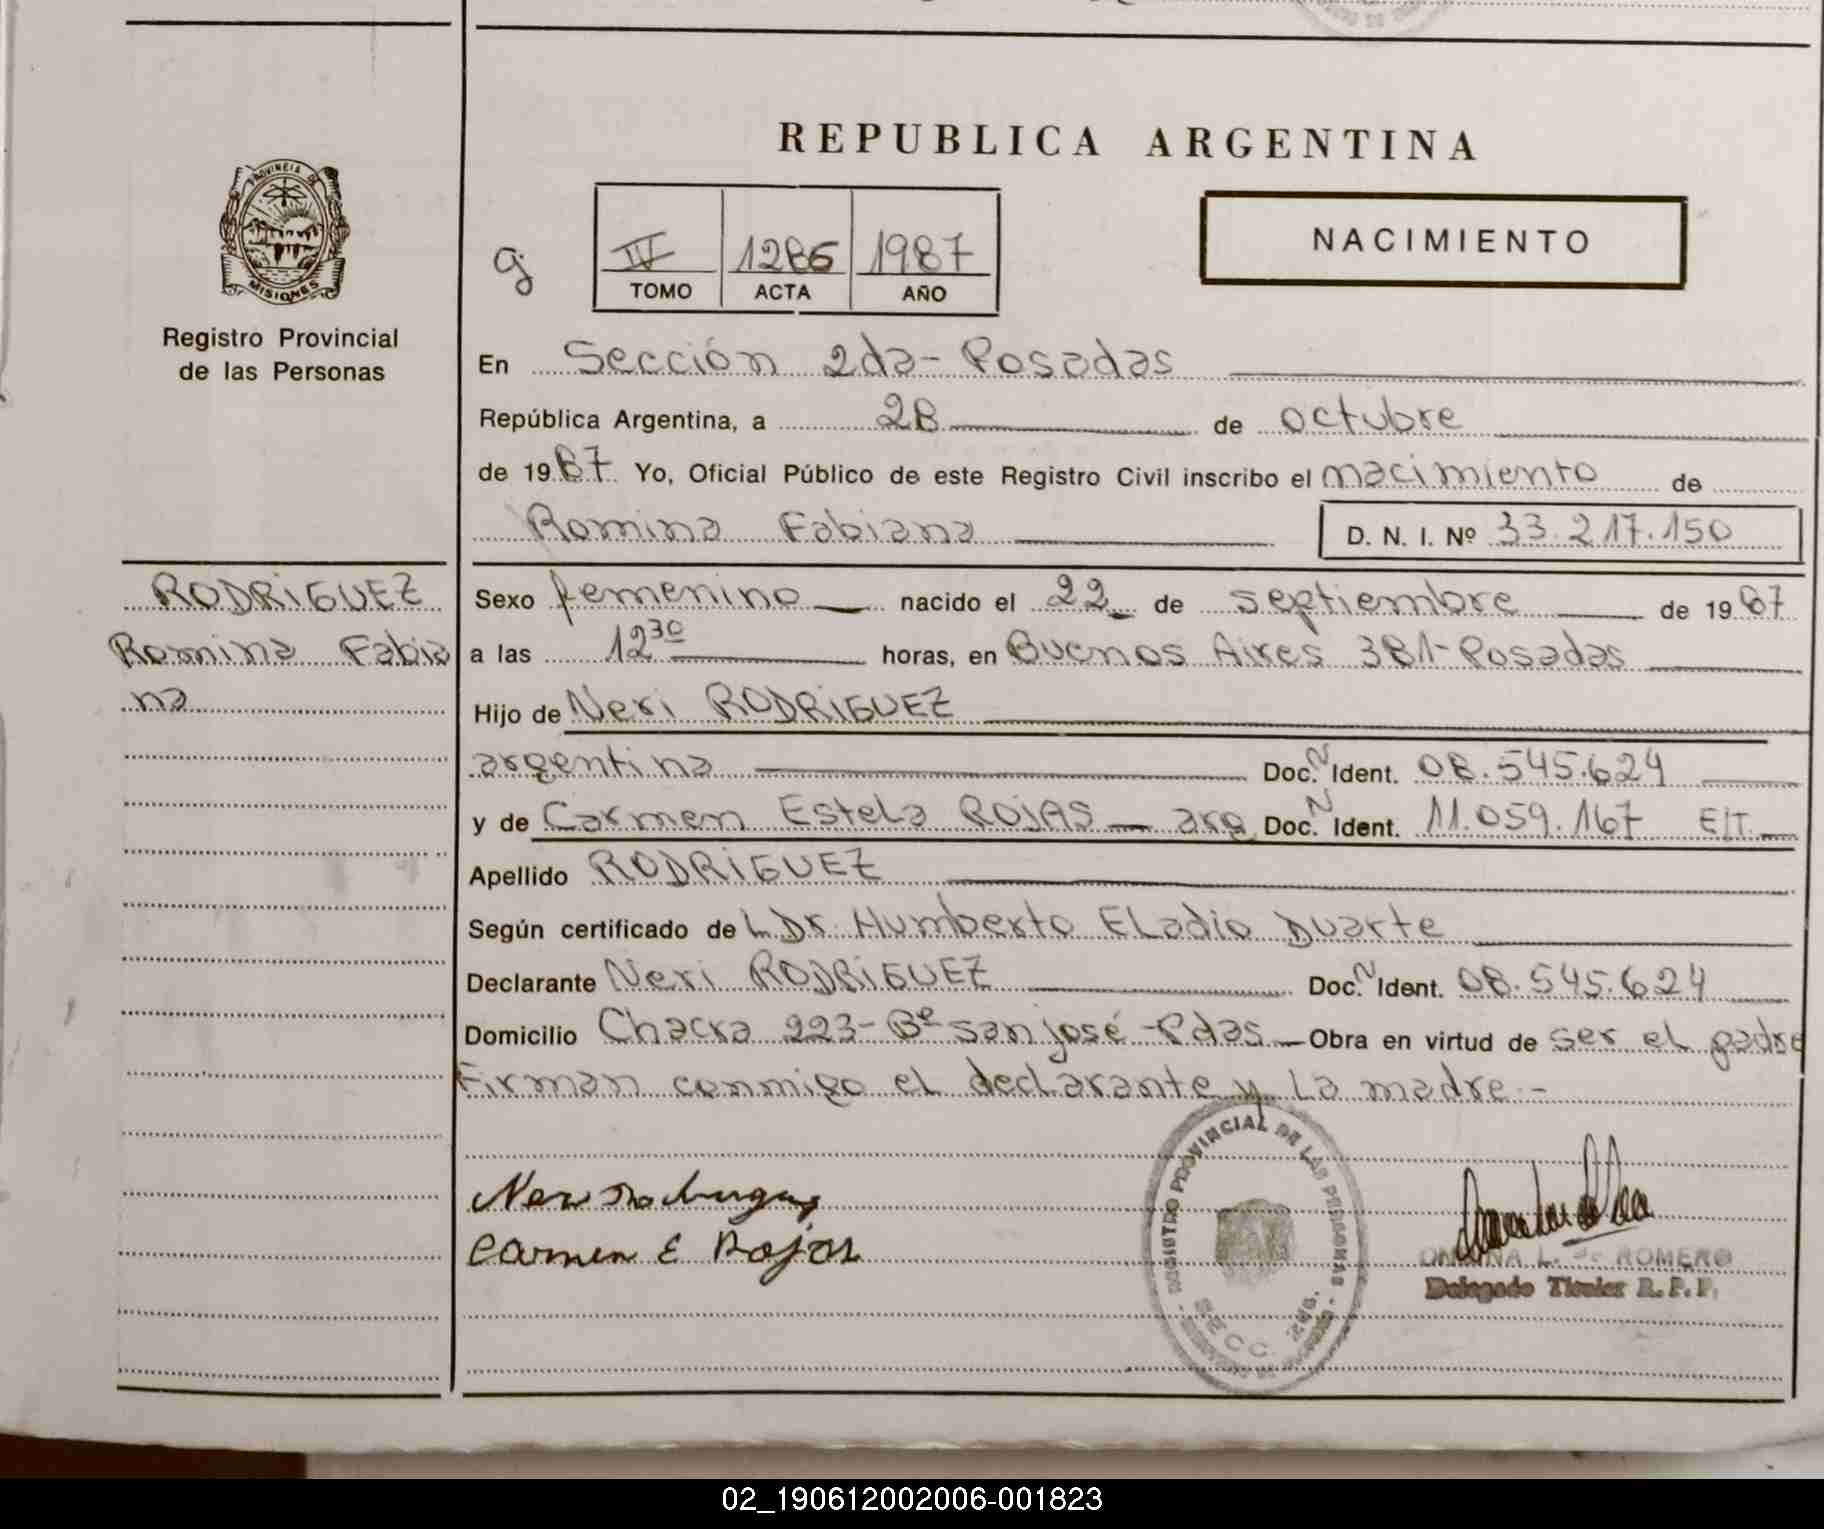 REPUBLICA ARGENTINA
PROVINCIA DE
MISIONES
Registro Provincial
de las Personas
g
IV 1286 1987
TOMO ACTA AÑO
NACIMIENTO
En Sección 2da - Posadas
República Argentina, a 28 de octubre
de 1987 Yo, Oficial Público de este Registro Civil inscribo el nacimiento de
Romina Fabiana D. N. I. Nº 33.217.150
RODRIGUEZ
Romina Fabia
na
Sexo femenino nacido el 22 de septiembre de 1987
a las 12 30 horas, en Buenos Aires 381 - Posadas
Hijo de Neri RODRIGUEZ
argentina Doc. N Ident. 08.545.624
y de Carmen Estela ROJAS - arg Doc. N Ident. 11.059.167 E/T.
Apellido RODRIGUEZ
Según certificado de L Dr. Humberto ELadio Duarte
Declarante Neri RODRIGUEZ Doc. N Ident. 08.545.624
Domicilio Chacra 223 - Bº san josé - Pdas - Obra en virtud de ser el padre
Firman conmigo el declarante y La madre. -
REGISTRO PROVINCIAL DE LAS PERSONAS
SECC. 2da.
Carmen E Rojas
L. de ROMERO
Delegado Titular R. P. P.
02_190612002006-001823